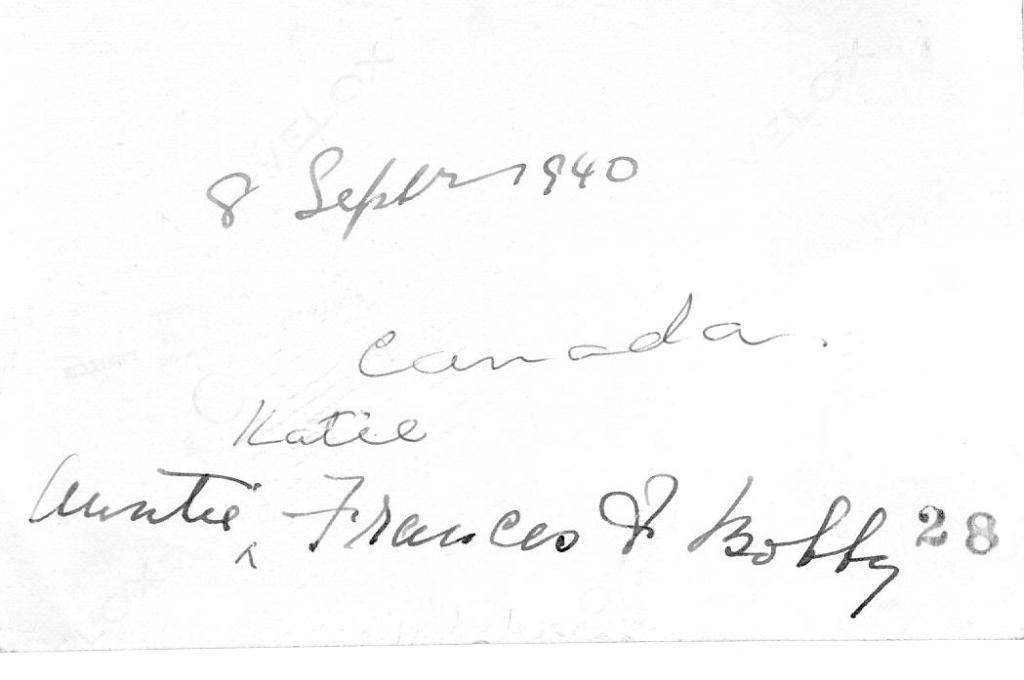 8 Septr 1940
Canada.
Katie
Auntie ^ Frances & Bobby 28
VELOX
VELOX